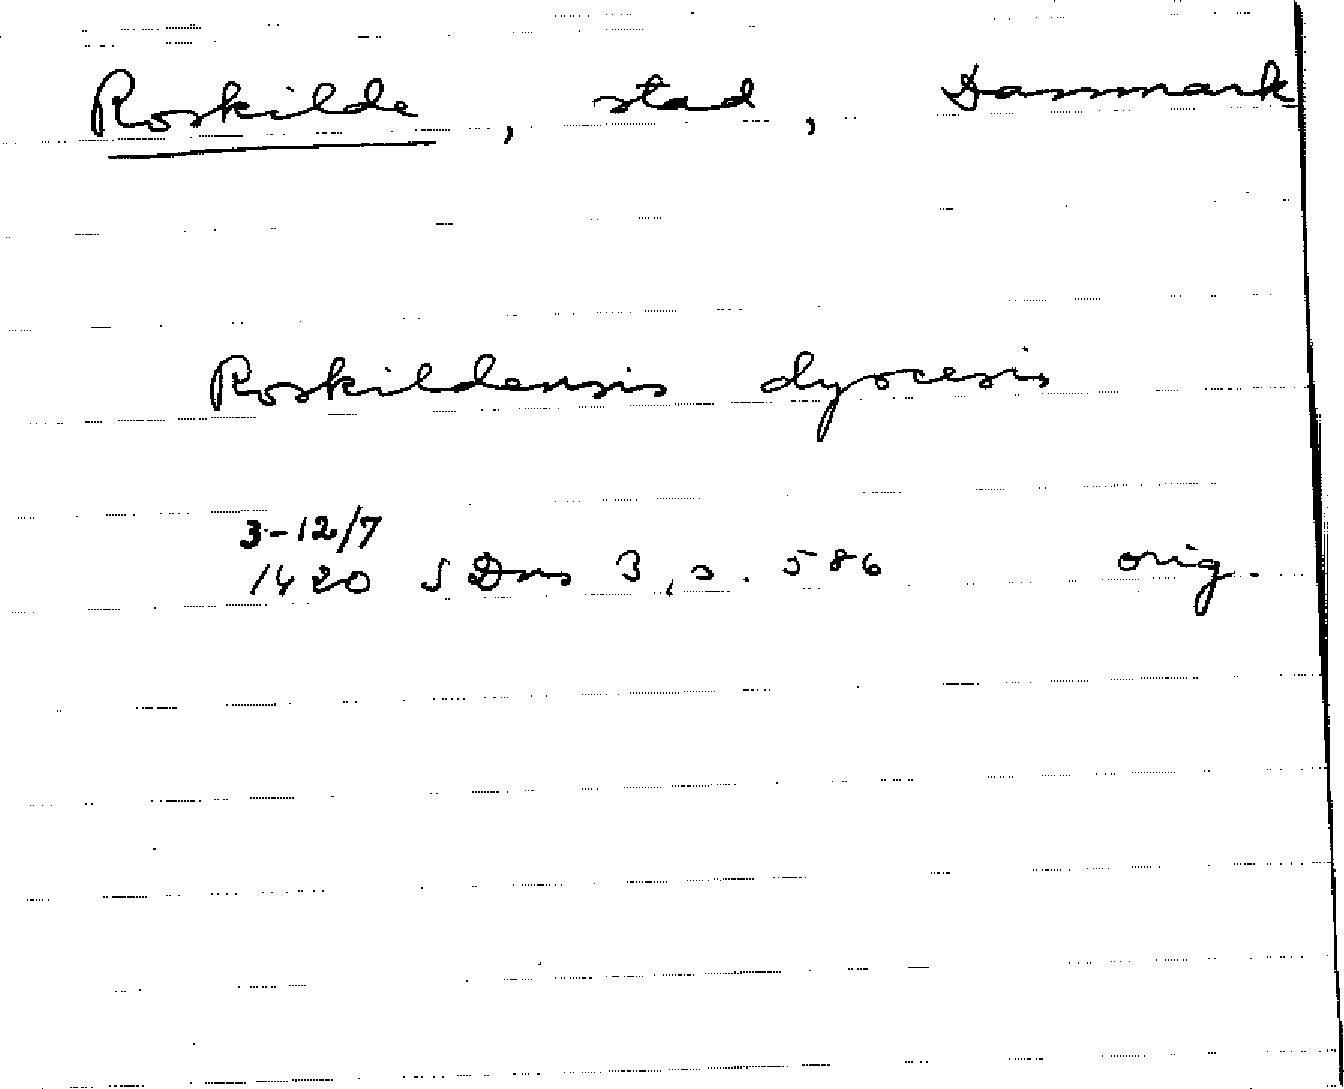 Roskilde, stad, Danmark
Roskildensis dyocesis
3-12/7
1420 SDns 3, s. 586 orig.